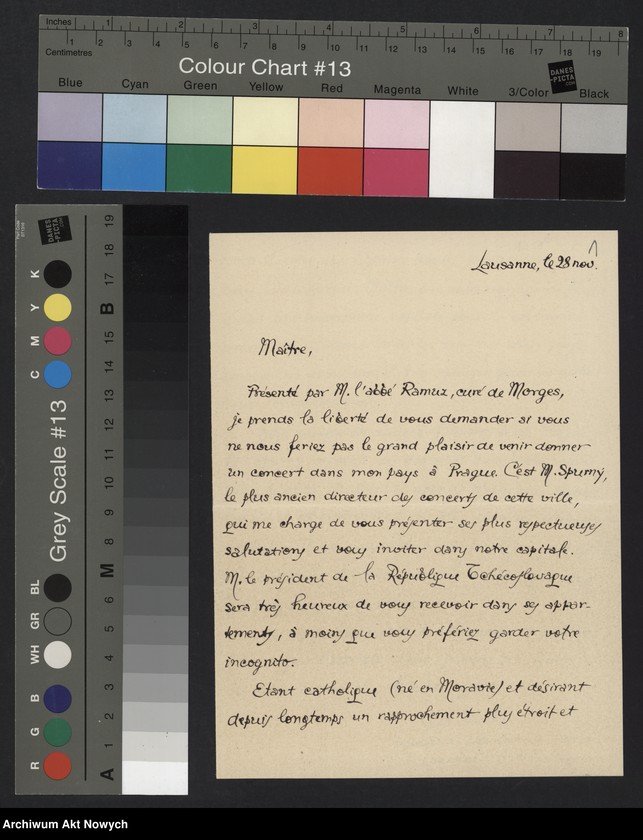 Inches 1 2 3 4 5 6 7 8
Centimetres 1 2 3 4 5 6 7 8 9 10 11 12 13 14 15 16 17 18 19
Colour Chart #13
DANES-PICTA.COM
Blue Cyan Green Yellow Red Magenta White 3/Color Black
Grey Scale #13
R G B WH GR BL C M Y K
A 1 2 3 4 5 6 M 8 9 10 11 12 13 14 15 B 17 18 19
DANES-PICTA.COM
Lausanne, le 28 nov.
Maître,
Présenté par M. l'abbé Ramuz, curé de Morges,
je prends la liberté de vous demander si vous
ne nous feriez pas le grand plaisir de venir donner
un concert dans mon pays à Prague. C'est M. Spurný,
le plus ancien directeur des concerts de cette ville,
qui me charge de vous présenter ses plus respectueuses
salutations et vous inviter dans notre capitale.
M. le président de la République Tchécoslovaque
sera très heureux de vous recevoir dans ses appar-
tements, à moins que vous préfériez garder votre
incognito.
Etant catholique (né en Moravie) et désirant
depuis longtemps un rapprochement plus étroit et
Archiwum Akt Nowych